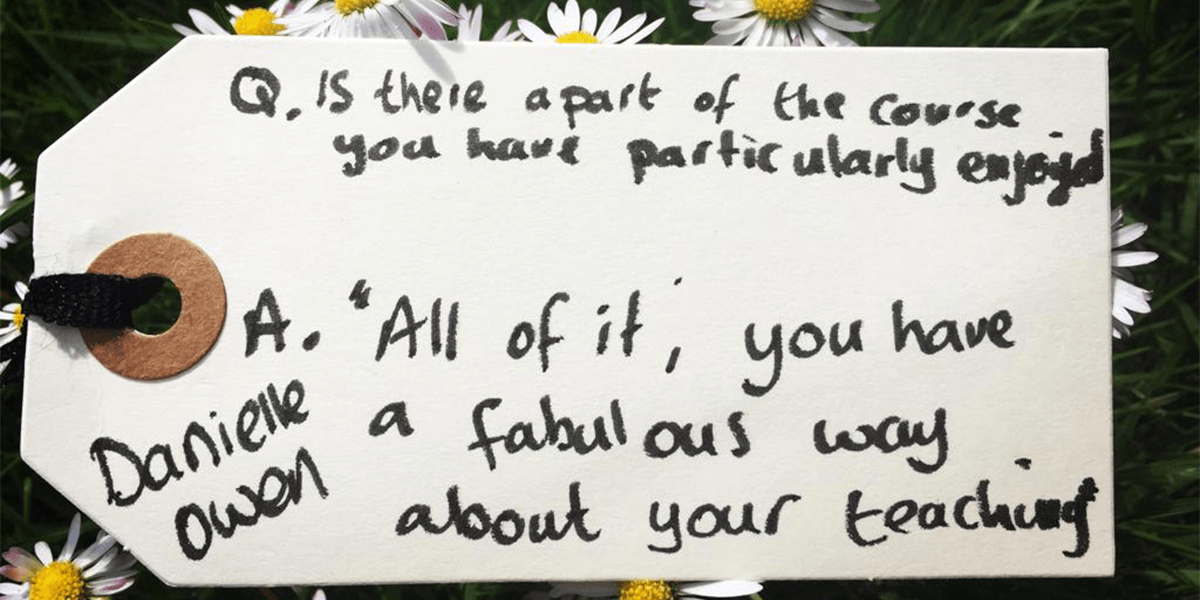 Q. Is there a part of the course
you have particularly enjoyed
A. "All of it', you have
a fabulous way
about your teaching"
Danielle
Owen